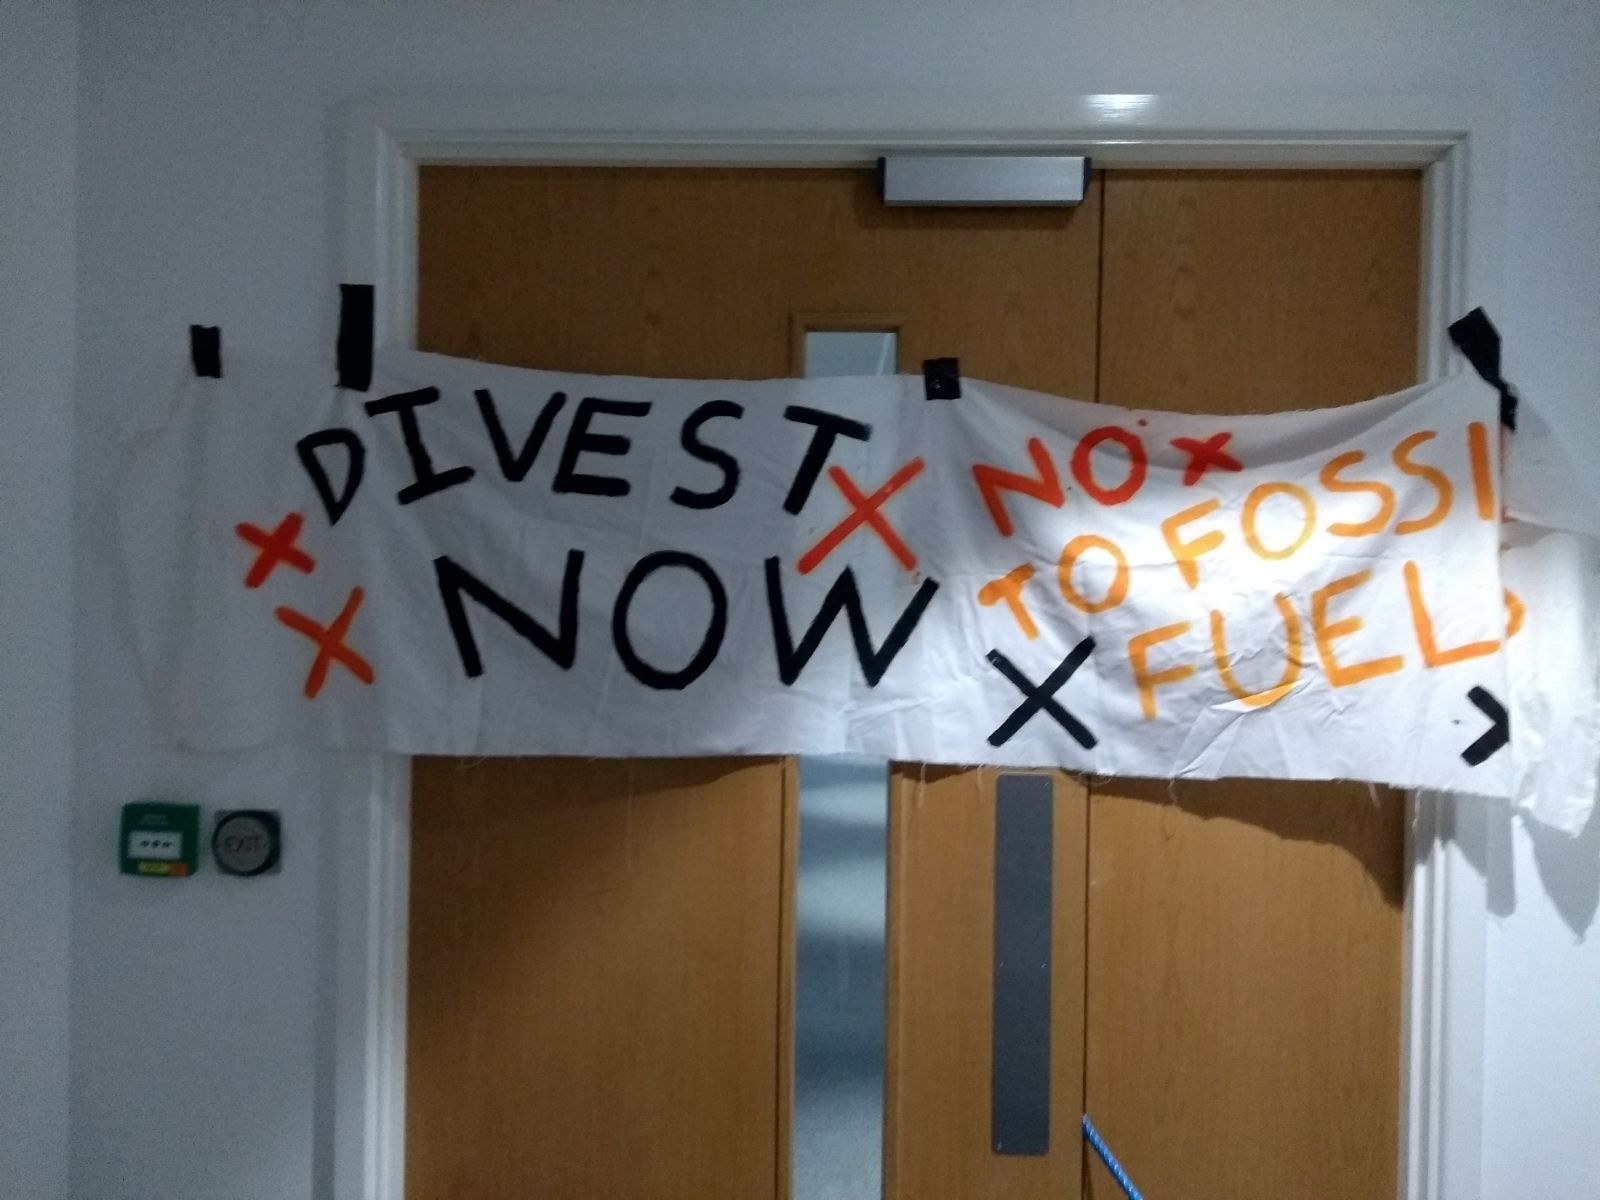 DIVEST
NOW
NO
TO FOSSI
FUEL
EXIT